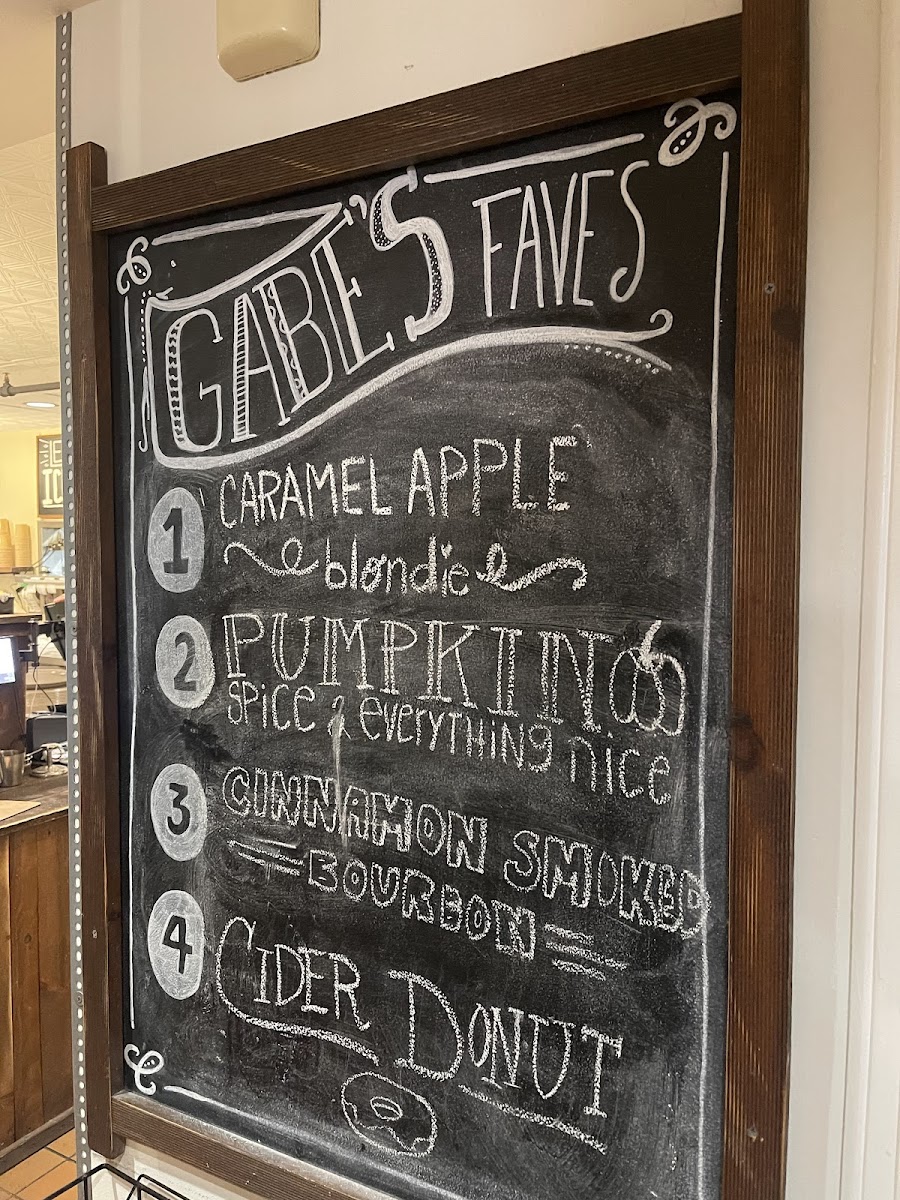 GABE'S FAVES
1 CARAMEL APPLE
blondie
2 PUMPKIN
SPICE & EVERYTHING NICE
3 CINNAMON SMOKED
BOURBON
4 CIDER DONUT